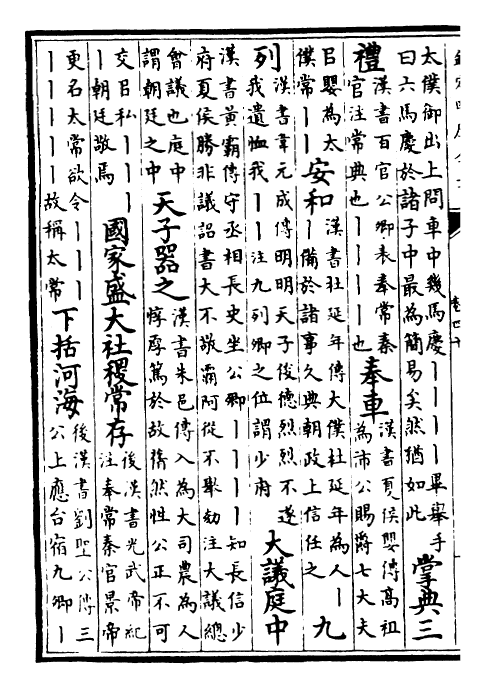 太僕御出上問車中幾馬慶丨丨丨丨畢舉手
曰六馬慶於諸子中最為簡易矣然猶如此
掌典三
禮
漢書百官公卿表奉常秦
官注常典也丨丨丨丨也
奉車
漢書夏侯嬰傳高祖
為沛公賜爵七大夫
㠯嬰為太
僕常丨丨
安和
漢書杜延年傳大僕杜延年為人丨
丨備於諸事久典朝政上信任之
九
列
漢書韋元成傳明明天子俊德烈烈不遂
我遺恤我丨丨注九列卿之位謂少府
大議庭中
漢書黄霸傳守丞相長史坐公卿丨丨丨丨知長信少
府夏侯勝非議詔書大不敬霸阿從不舉劾注大議總
會議也庭中
謂朝廷之中
天子器之
漢書朱邑傳入為大司農為人
惇厚篤於故舊然性公正不可
交㠯私丨丨丨
丨朝廷敬焉
國家盛大社稷常存
後漢書光武帝紀
注奉常秦官景帝
更名太常欲令丨丨丨丨
丨丨丨丨故稱太常
下括河海
後漢書劉聖公傳三
公上應台宿九卿丨